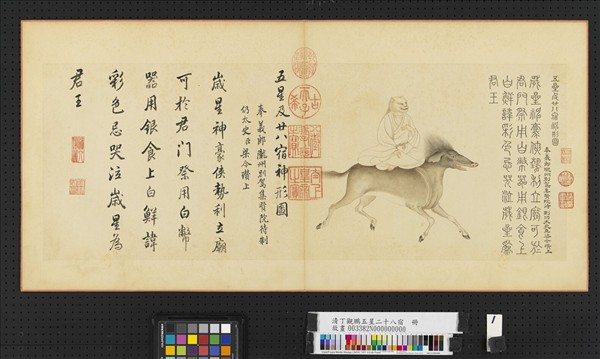 五星及廿八宿神形圖
奉義郎隴州別駕集賢院待制仍太史臣梁令瓚上
歲星神豪俠勢利立廟可於
君門祭用白幣器用銀食上
白鮮諱彩色忌哭泣歲星為
君王
五星及廿八宿神形圖
奉義郎隴州別駕集賢院待制
仍太史臣梁令瓚上
歲星神豪俠勢利立廟
可於君門祭用白幣
器用銀食上白鮮諱
彩色忌哭泣歲星為
君王
清丁觀鵬五星二十八宿 冊
故畫 003382N000000000
1